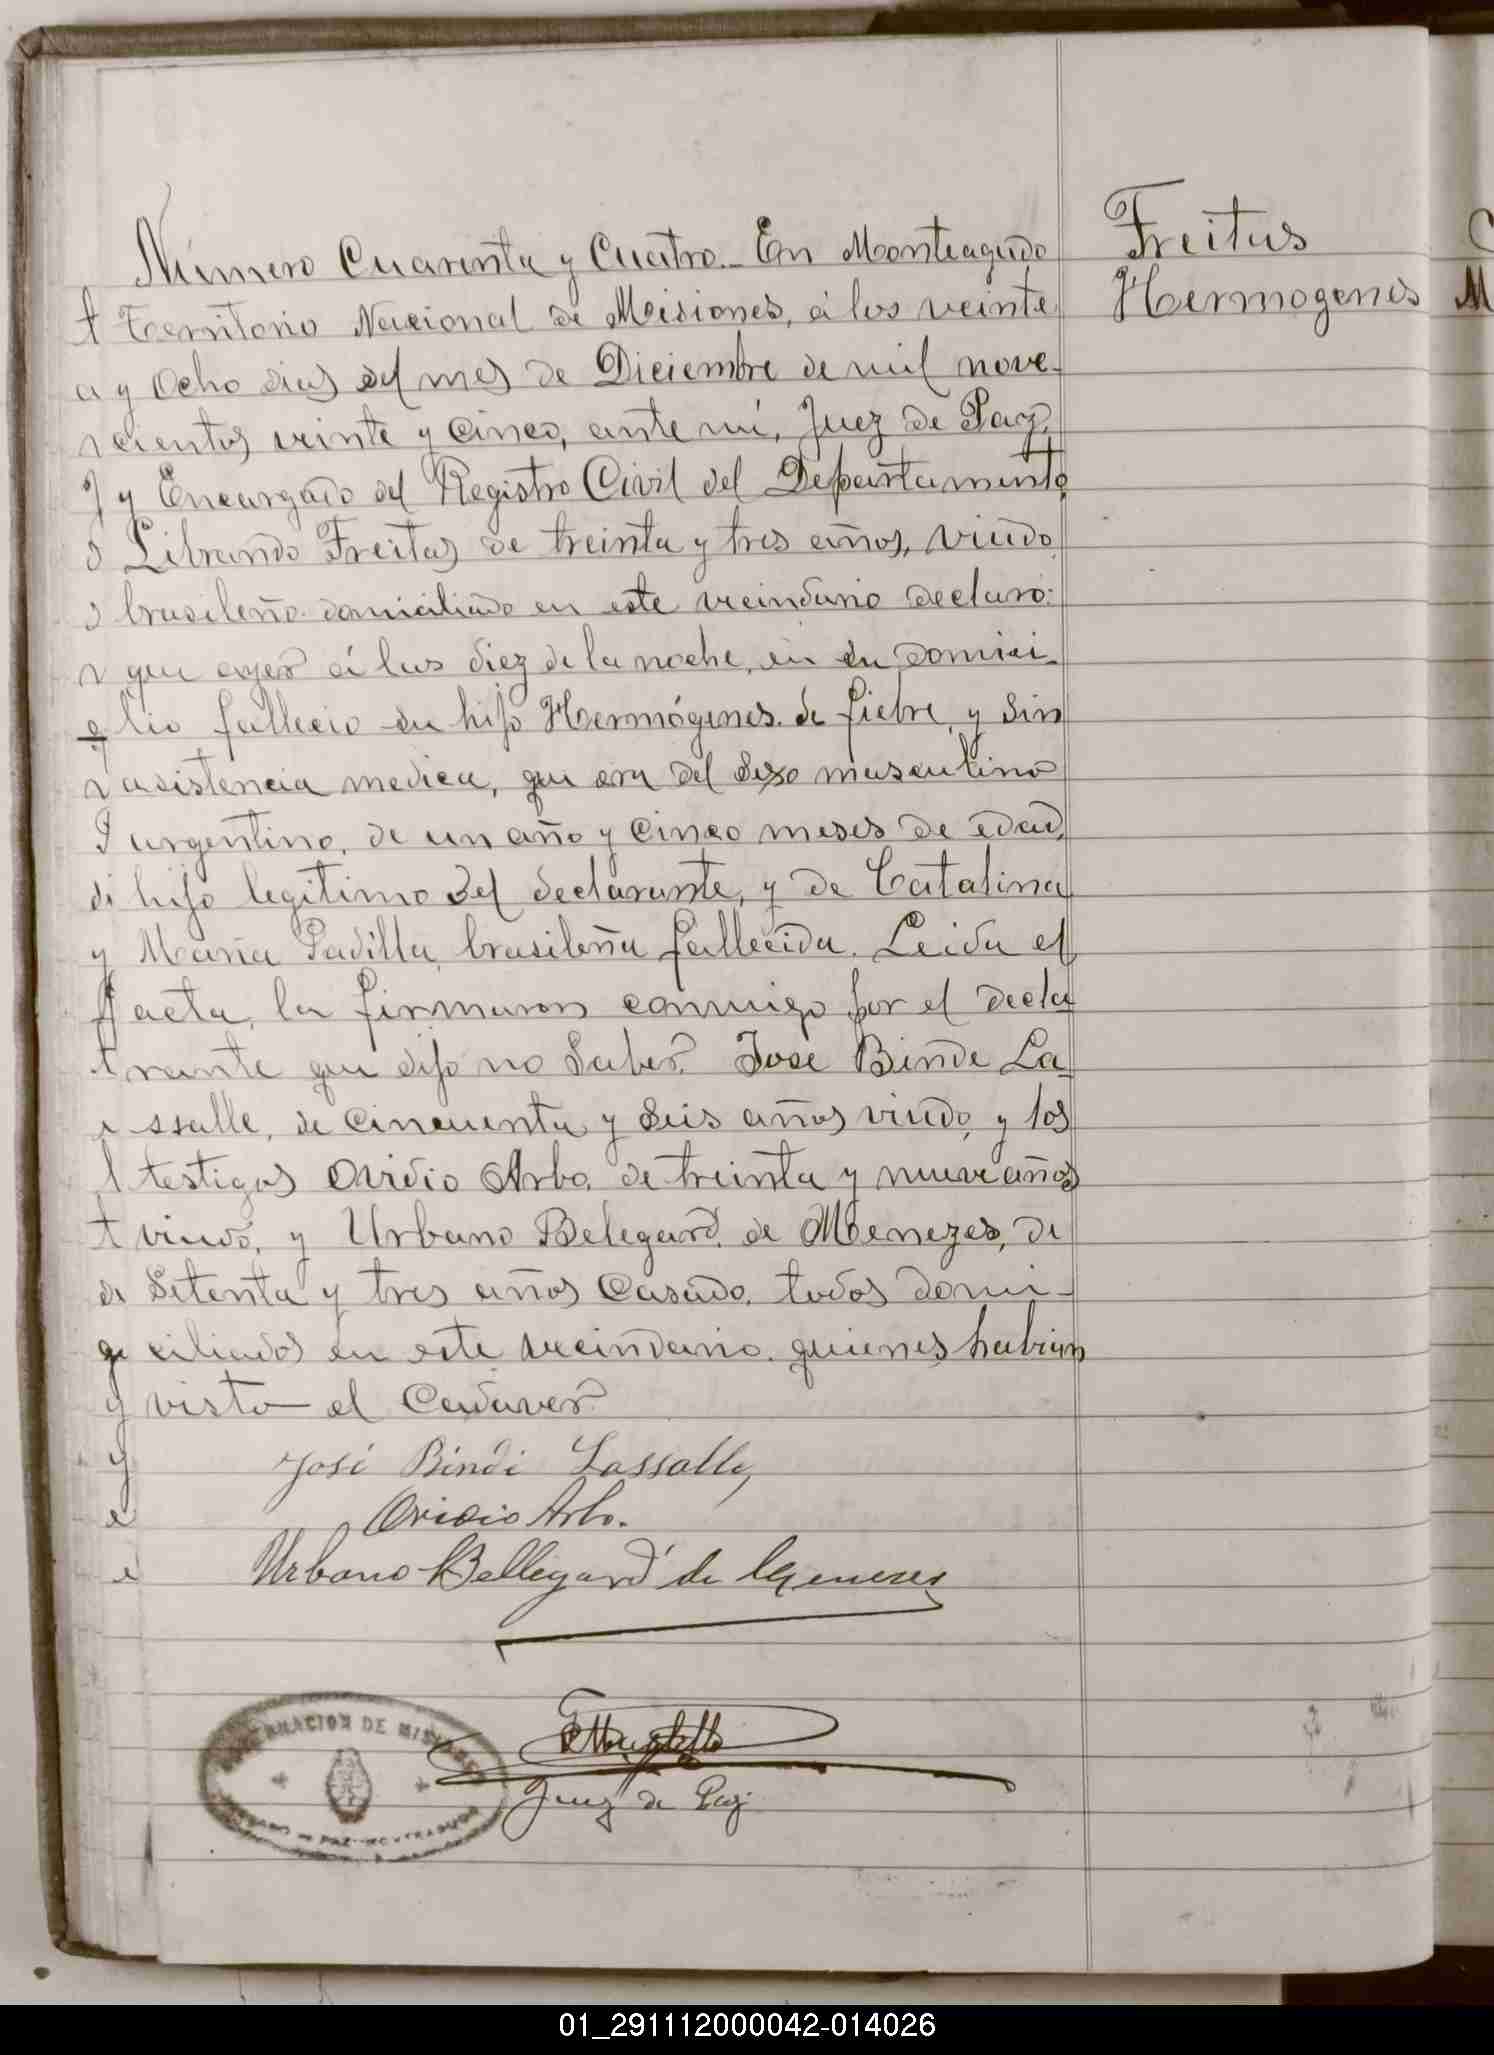 Número Cuarenta y Cuatro.- En Monteagudo
Territorio Nacional de Misiones, á los veinte
y Ocho dias del mes de Diciembre de mil nove-
cientos veinte y cinco, ante mi, Juez de Paz,
y Encargado del Registro Civil del Departamento
Librando Freitas de treinta y tres años, viudo
brasileño domiciliado en este vecindario declaró:
que ayer á las diez de la noche, en su domici-
lio fallecio su hijo Hermógenes de fiebre, y sin
asistencia medica, que era del sexo masculino
argentino, de un año y cinco meses de edad,
hijo legitimo del declarante, y de Catalina
Maria Padilla, brasileña fallecida. Leida el
acta, la firmaron conmigo por el decla
rante que dijo no Saber. José Binde La-
ssalle, de cincuenta y seis años viudo, y los
testigos Ovidio Arbo, de treinta y nueve años
viudo, y Urbano Belegard de Menezes, de
Setenta y tres años Casado, todos domi-
ciliados en este vecindario quienes habian
visto el Cadaver.
José Bindi Lassalle,
Ovidio Arbo.
Urbano Bellegard de Menezes
Juez de Paz
GOBERNACION DE MISIONES
JUZGADO DE PAZ MONTEAGUDO
Freitas
Hermogenes
01_291112000042-014026